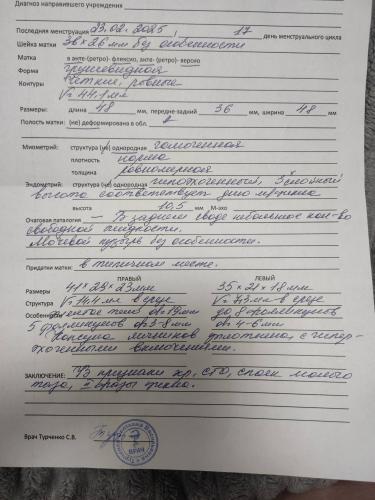 Диагноз направившего учреждения
Последняя менструация 23.02.2025, 17 день менструального цикла
Шейка матки 36×26 мм без особенности
Матка в анте-(ретро)- флексио, анте- (ретро)- версио
Форма грушевидная
Контуры четкие, ровные
V= 44.1 мл
Размеры: длина 48 мм, передне-задний 36 мм, ширина 48 мм,
Полость матки: (не) деформирована в обл.
Миометрий: структура (не) однородная гомогенная
плотность норма
толщина равномерная
Эндометрий: структура (не) однородная гипоэхогенный, 3х слойный
высота соответствует дню м. цикла
высота 10,5 мм М-эхо
Очаговая патология — В заднем своде небольшое кол-во
свободной жидкости.
Мочевой пузырь без особенности.
Придатки матки: в типичном месте.
ПРАВЫЙ ЛЕВЫЙ
Размеры 41×29×23мм 35×21×18мм
Структура V=14.4 мл V=7.3 мл
Особенности желтое тело d=19мм до 8 фолликулов
5 фолликулов d=3-8мм d=4-6мм
Капсула яичников уплотнена, с гипер-
эхогенными включениями.
ЗАКЛЮЧЕНИЕ: УЗ признаки хр. СТО, спаек малого
таза, II фазы цикла.
Врач Турченко С.В.
ВРАЧ